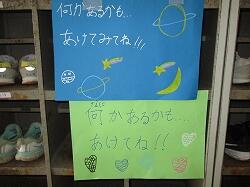 何かあるかも…
あけてみてね!!!
何かあるかも…
あけてね!!